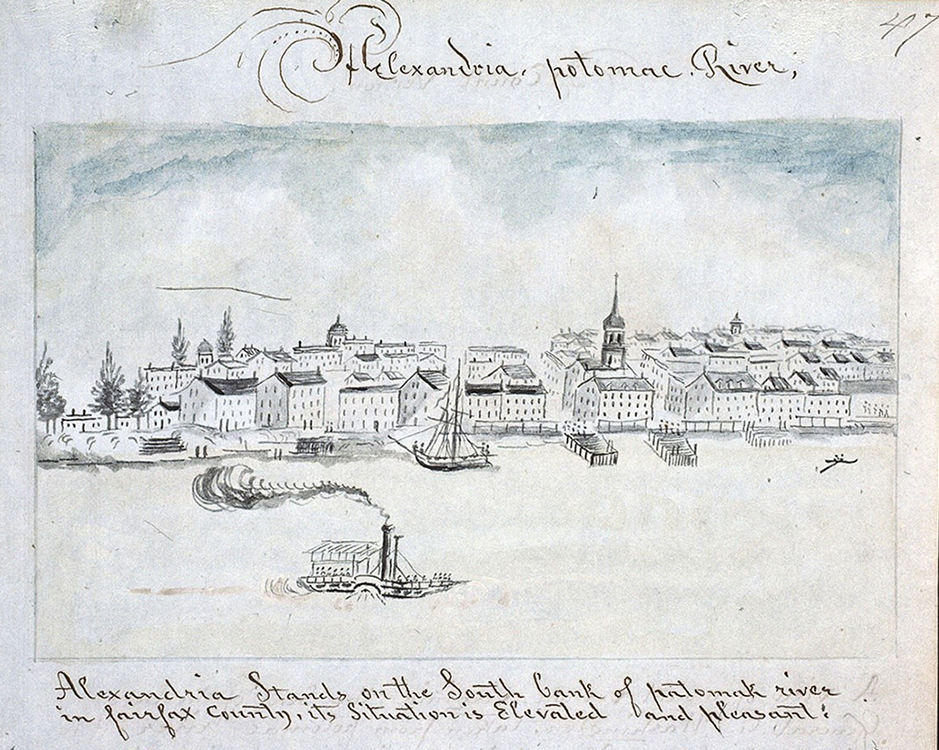 47
Alexandria. potomac. River,
Alexandria Stands on the South bank of patomak river
in fairfax County, its Situation is Elevated and pleasant: